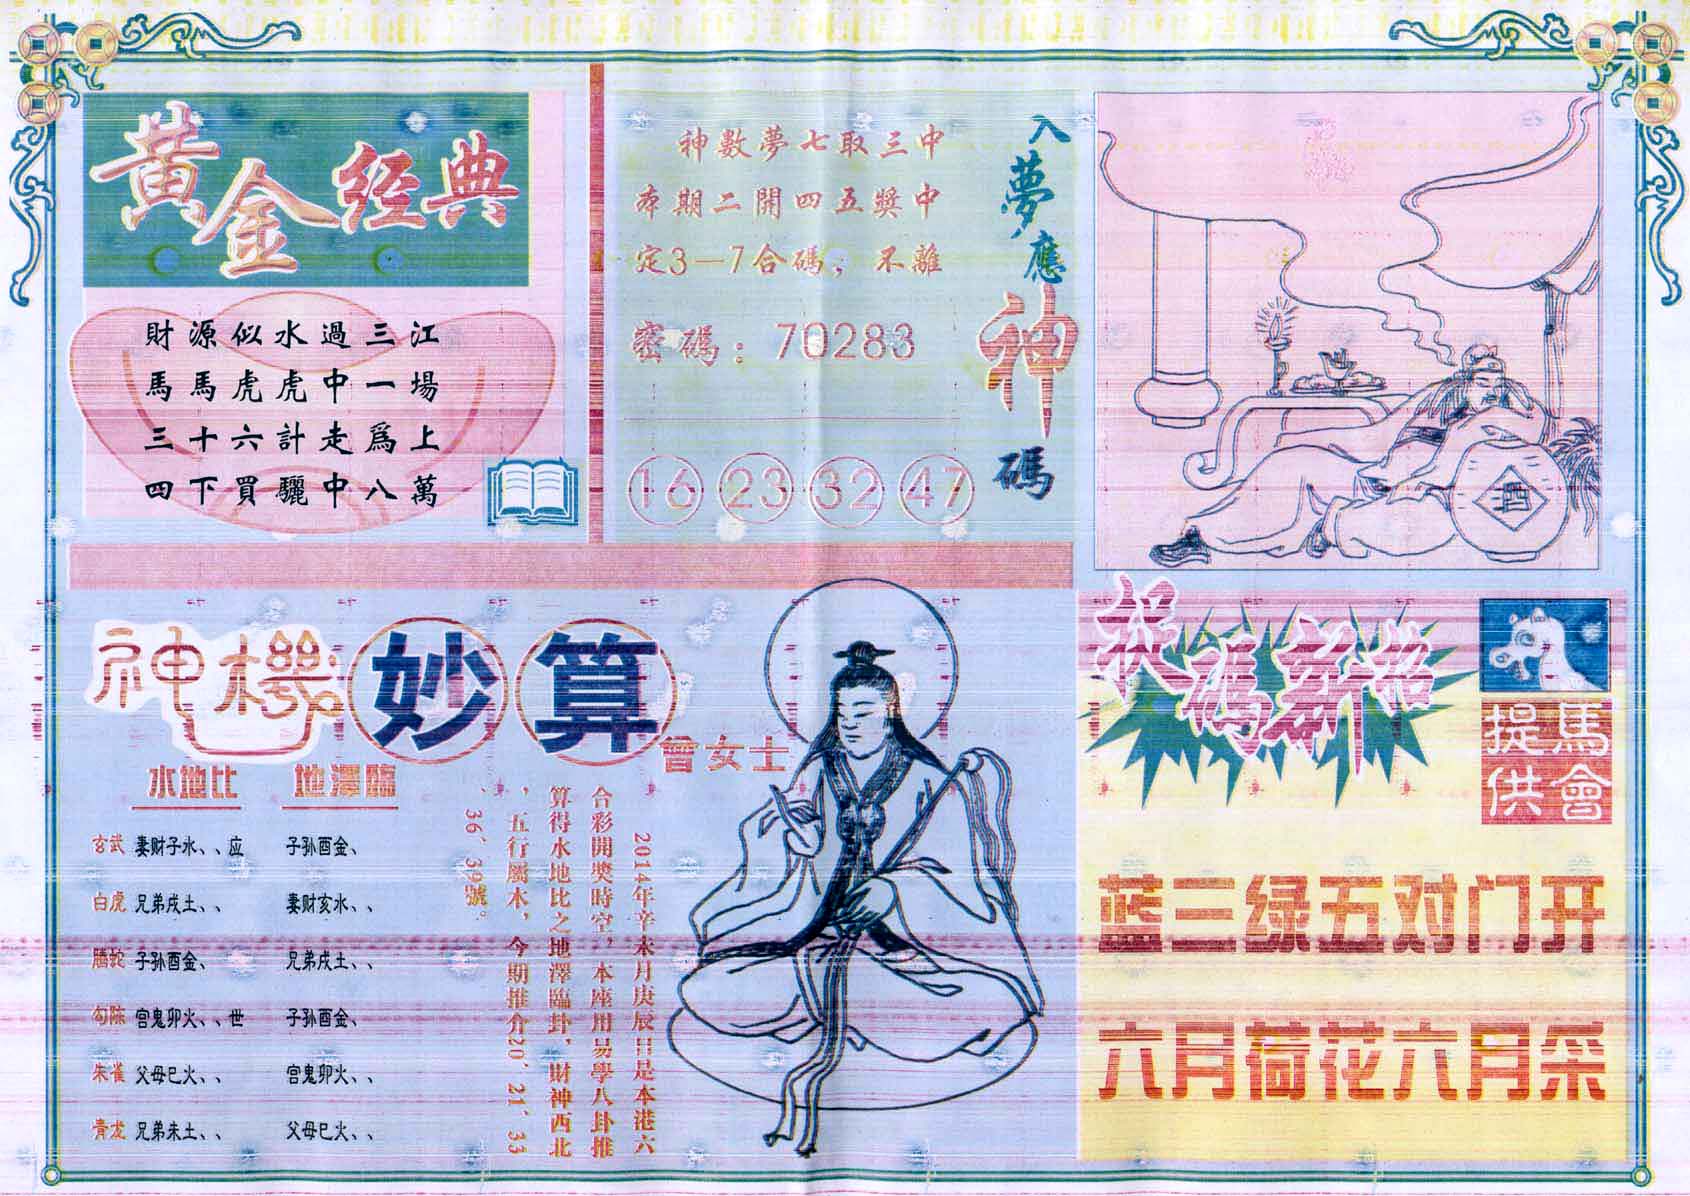 黃金經典
財源似水過三江
馬馬虎虎中一場
三十六計走爲上
四下買驪中八萬
神數夢七取三中
本期二開四五獎中
定3一7合碼，不離
密碼：70283
16 23 32 47
入夢應神碼
酒
神機妙算
曾女士
水地比 地澤臨
玄武 妻财子水、、应 子孙酉金、
白虎 兄弟戌土、、 妻财亥水、、
腾蛇 子孙酉金、 兄弟戌土、、
勾陈 宫鬼卯火、、世 子孙酉金、
朱雀 父母巳火、、 宫鬼卯火、、
青龙 兄弟未土、、 父母巳火、、
2014年辛未月庚辰日是本港六
合彩開獎時空，本座用易學八卦推
算得水地比之地澤臨卦，財神西北
，五行屬木，今期推介20、21、33
、36、39號。
捉碼新招
馬會
提供
蓝三绿五对门开
六月荷花六月采